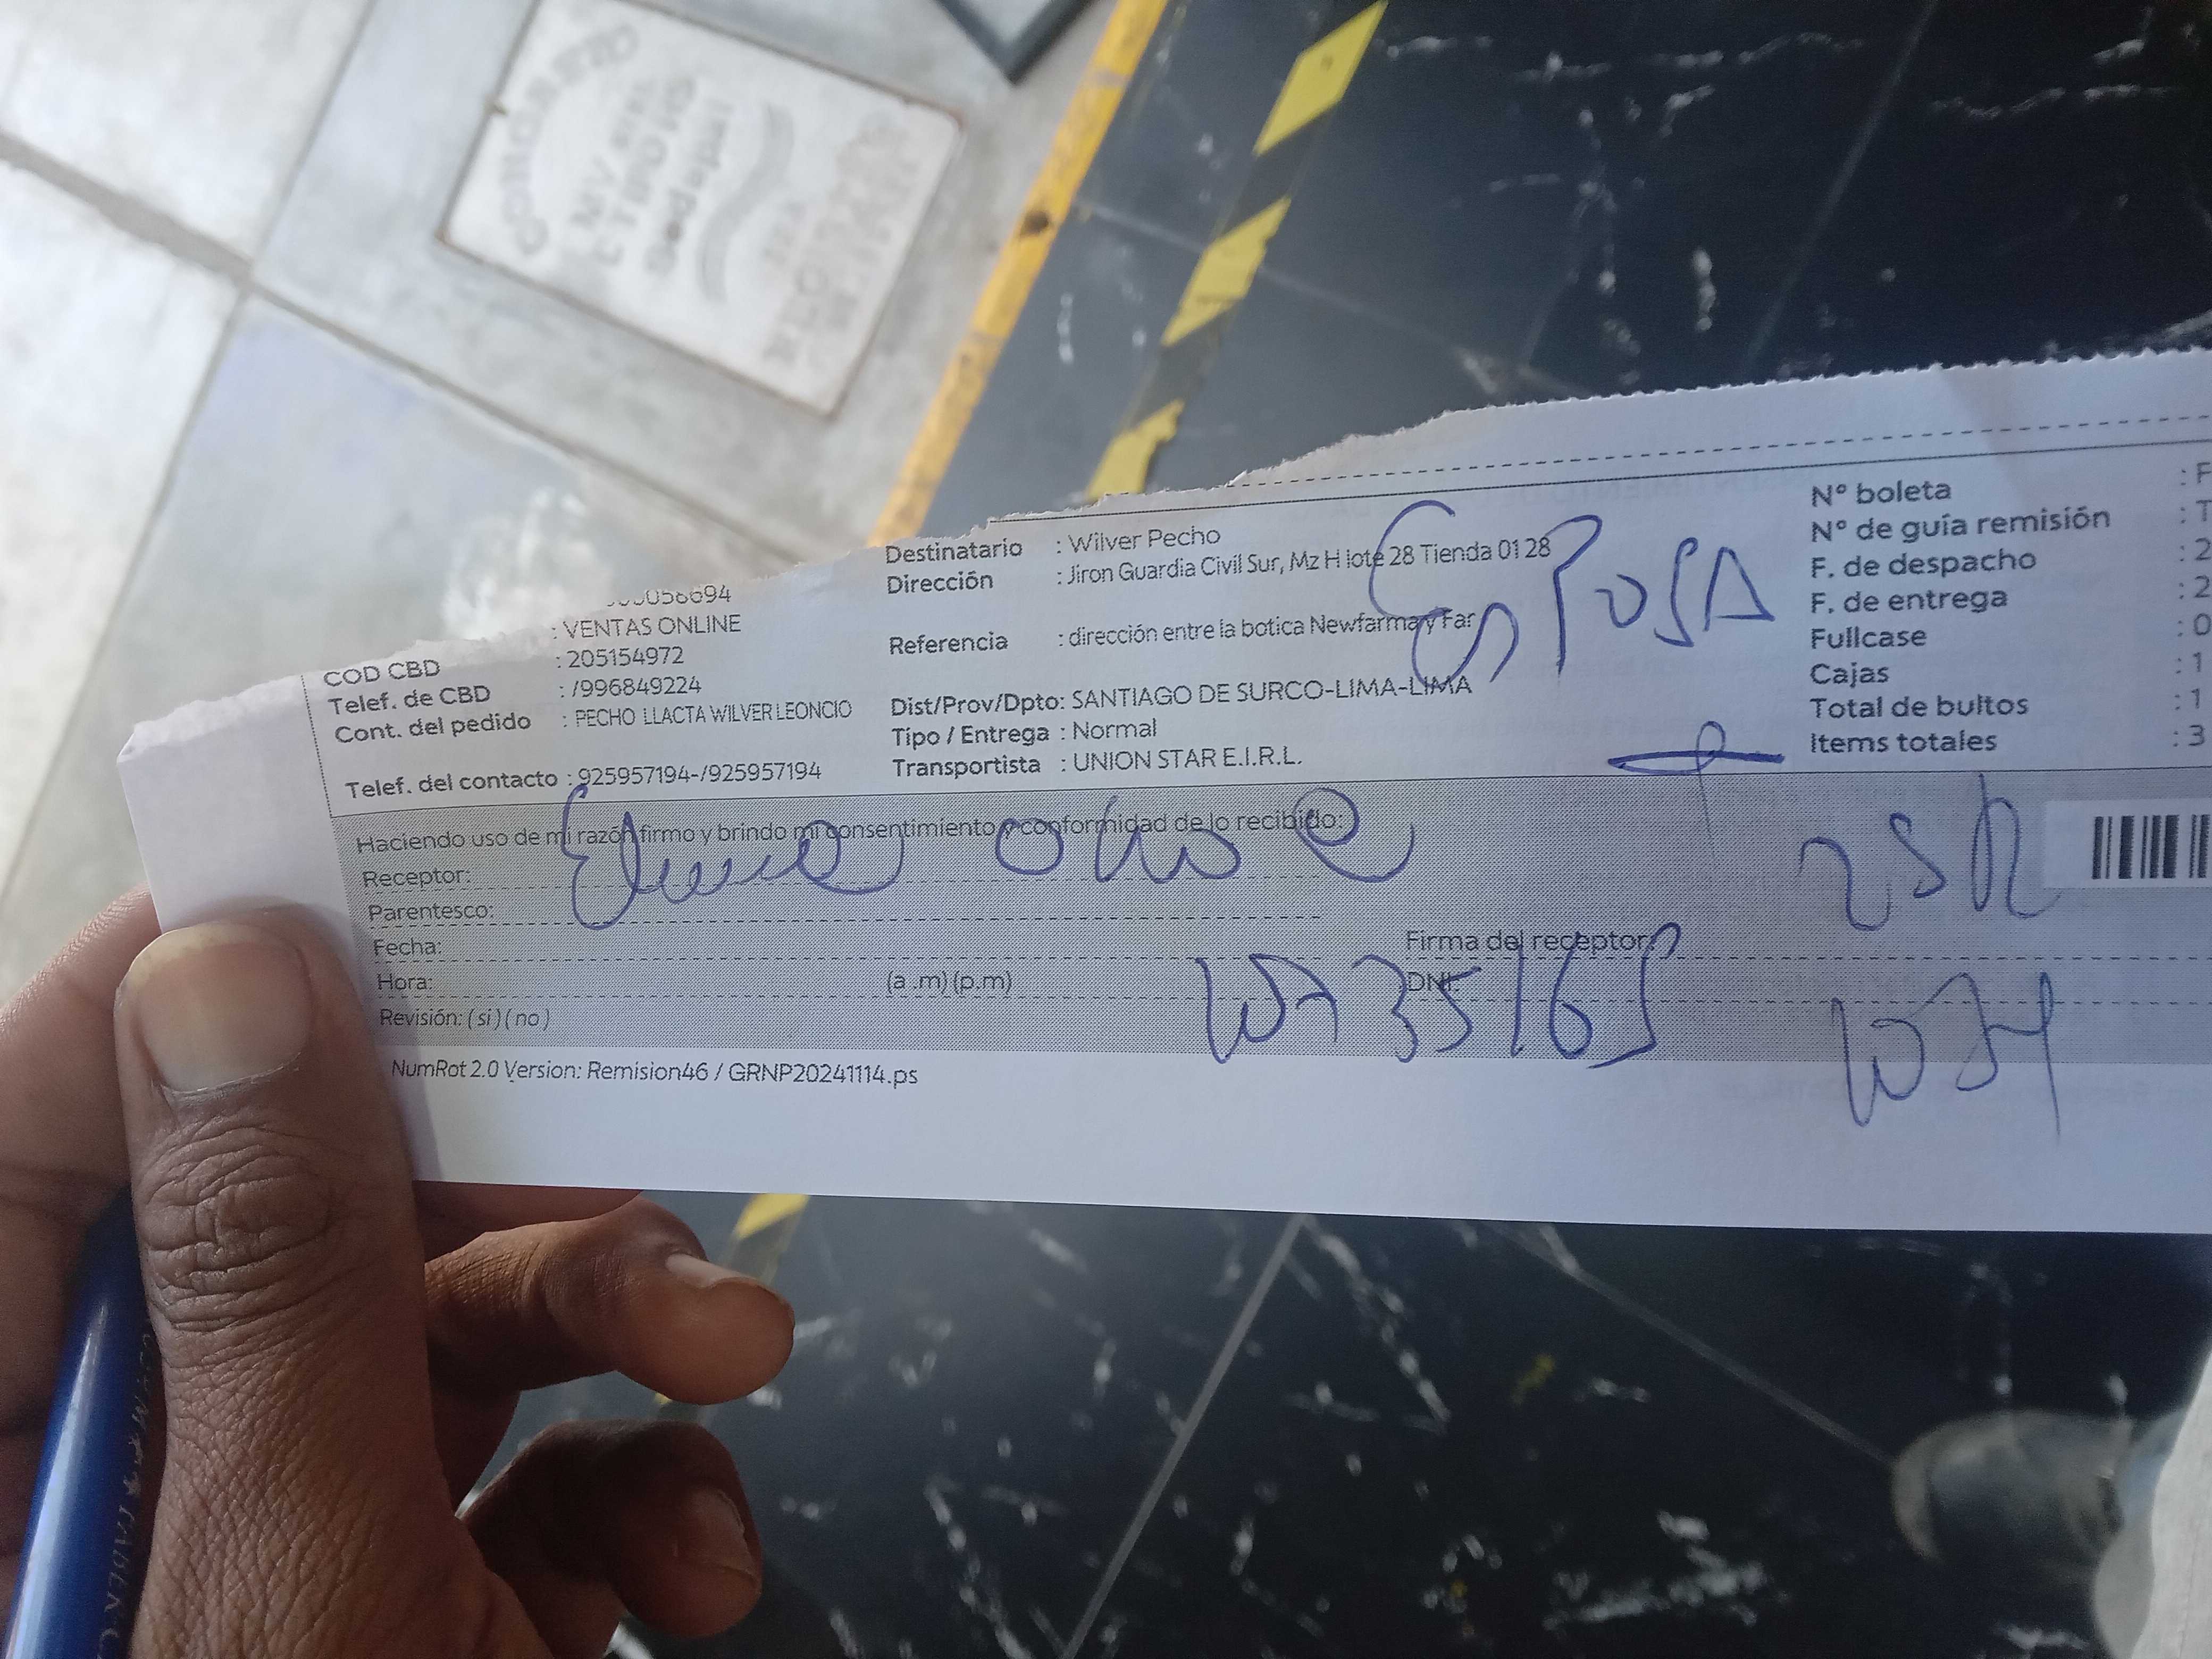 058694
: VENTAS ONLINE
COD CBD : 205154972
Telef. de CBD : /996849224
Cont. del pedido : PECHO LLACTA WILVER LEONCIO
Telef. del contacto : 925957194-/925957194
Destinatario : Wilver Pecho
Dirección : Jiron Guardia Civil Sur, Mz H lote 28 Tienda 0128
Referencia : dirección entre la botica Newfarma y Far
Dist/Prov/Dpto: SANTIAGO DE SURCO-LIMA-LIMA
Tipo / Entrega : Normal
Transportista : UNION STAR E.I.R.L.
ESPOSA
N° boleta : F
N° de guía remisión : T
F. de despacho : 2
F. de entrega : 2
Fullcase : 0
Cajas : 1
Total de bultos : 1
Items totales : 3
Haciendo uso de mi razón firmo y brindo mi consentimiento y conformidad de lo recibido:
Receptor:
Parentesco:
Fecha:
Firma del receptor:
Hora: (a .m) (p.m)
DNI:
Revisión: ( si ) ( no )
NumRot 2.0 Version: Remision46 / GRNP20241114.ps
Sedapal